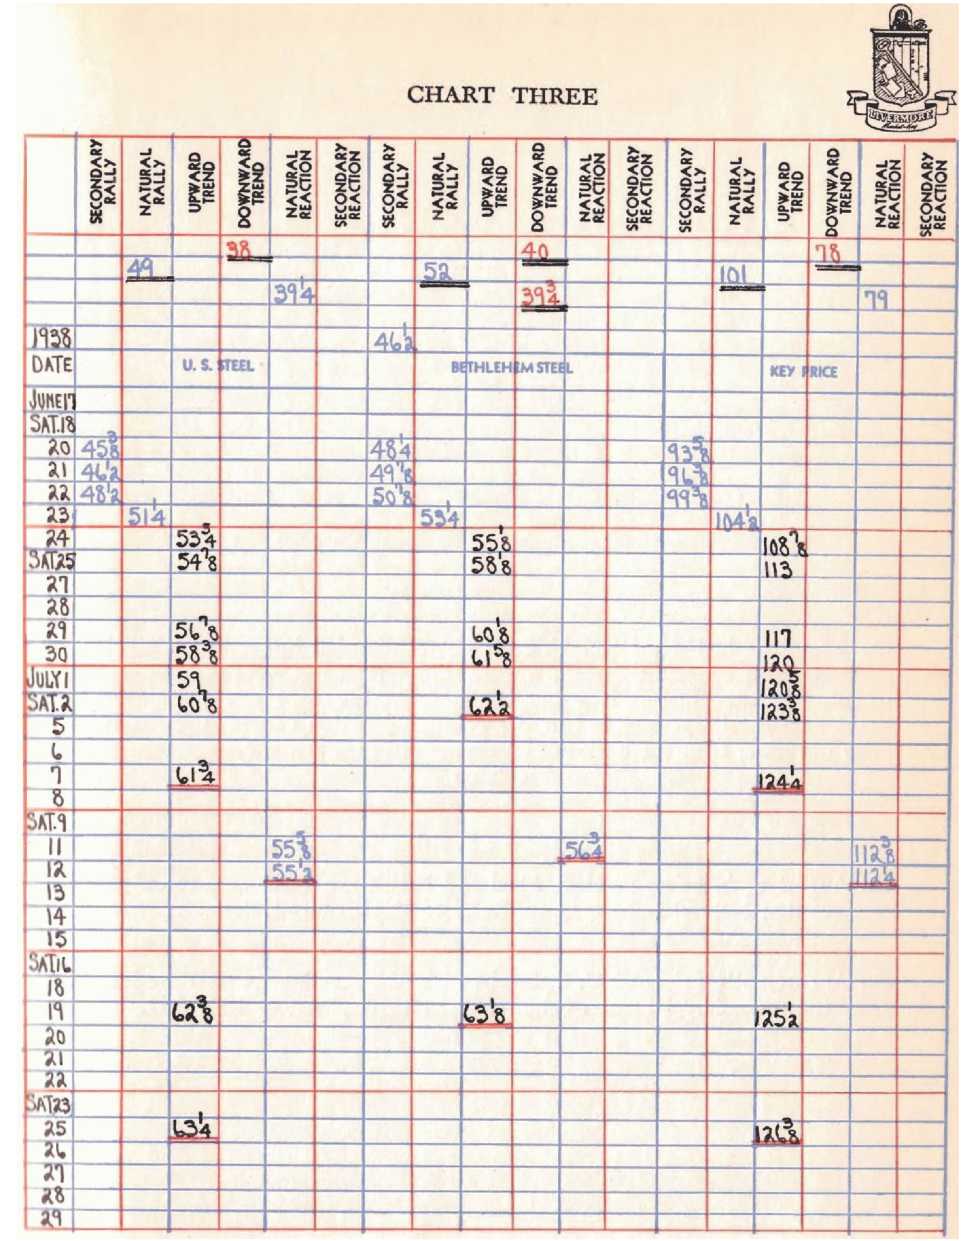 LIVERMORE
Market Key
CHART THREE
SECONDARY RALLY NATURAL RALLY UPWARD TREND DOWNWARD TREND NATURAL REACTION SECONDARY REACTION SECONDARY RALLY NATURAL RALLY UPWARD TREND DOWNWARD TREND NATURAL REACTION SECONDARY REACTION SECONDARY RALLY NATURAL RALLY UPWARD TREND DOWNWARD TREND NATURAL REACTION SECONDARY REACTION
38 40 78
49 52 101
39 1/4 39 3/4 79
1938 46 1/2
DATE U. S. STEEL BETHLEHEM STEEL KEY PRICE
JUNE 17
SAT.18
20 45 3/8 48 1/4 93 5/8
21 46 1/2 49 7/8 96 3/8
22 48 1/2 50 7/8 99 3/8
23 51 1/4 53 1/4 104 1/2
24 53 3/4 55 1/8 108 7/8
SAT25 54 7/8 58 1/8 113
27
28
29 56 7/8 60 1/8 117
30 58 3/8 61 5/8 120
JULY1 59 120 5/8
SAT.2 60 7/8 62 1/2 123 3/8
5
6
7 61 3/4 124 1/4
8
SAT.9
11 55 5/8 56 3/4 112 3/8
12 55 1/2 112 1/4
13
14
15
SAT16
18
19 62 3/8 63 1/8 125 1/2
20
21
22
SAT23
25 63 1/4 126 3/8
26
27
28
29